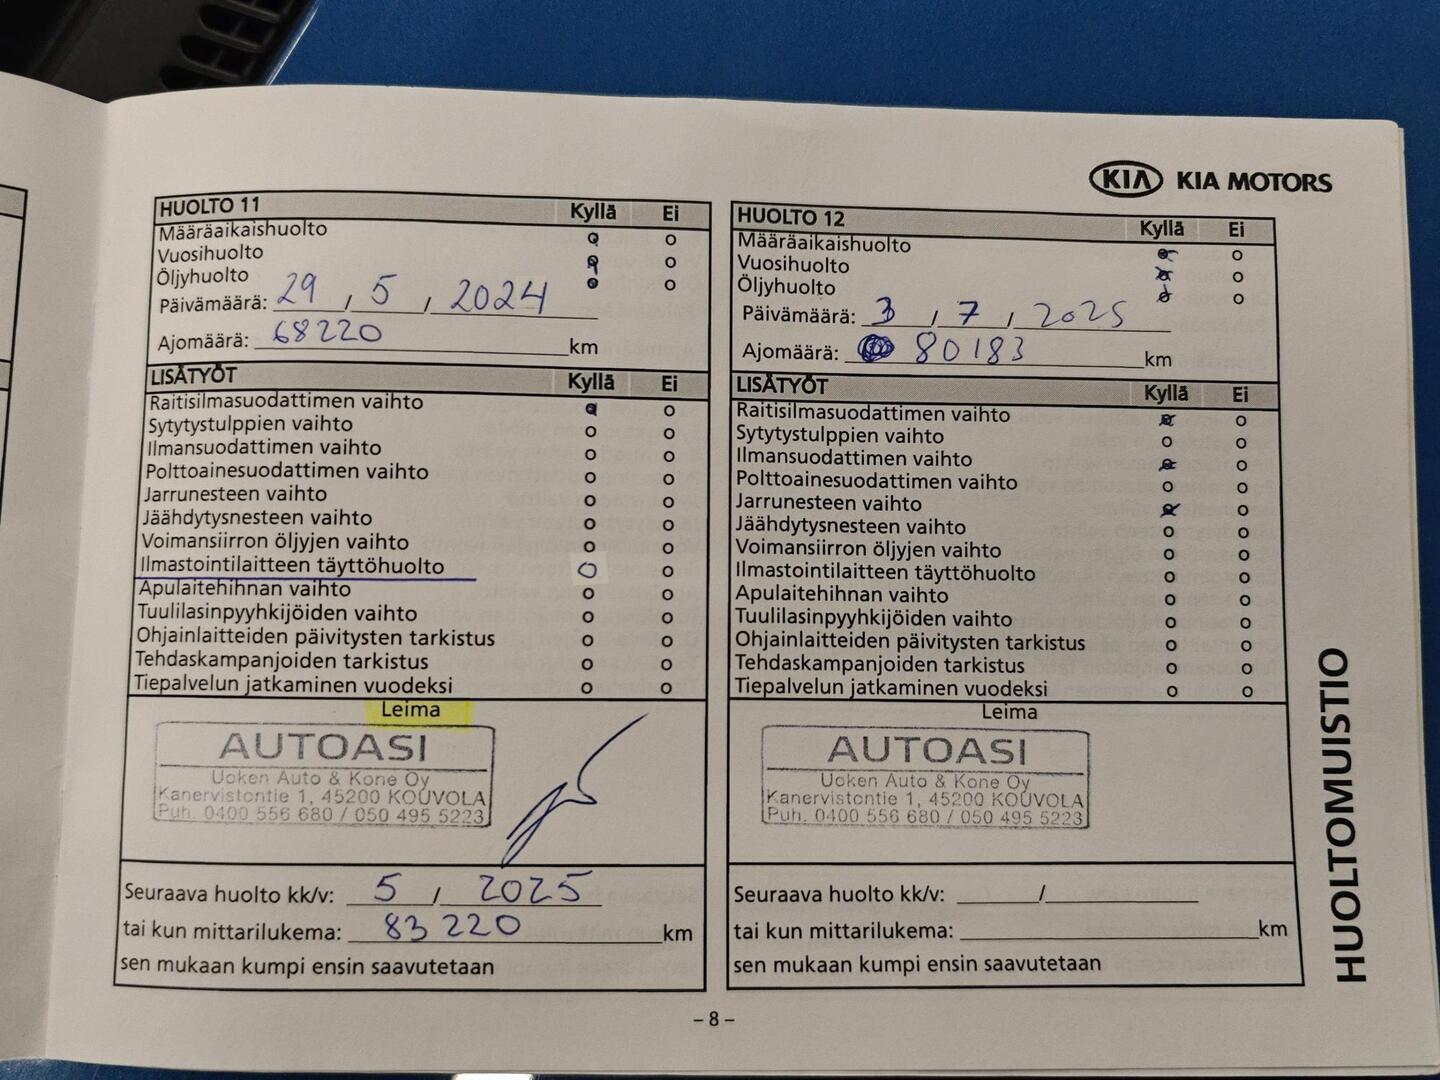 KIA KIA MOTORS
HUOLTO 11 Kyllä Ei
Määräaikaishuolto o o
Vuosihuolto o o
Öljyhuolto o o
Päivämäärä: 29 / 5 / 2024
Ajomäärä: 68220 km
LISÄTYÖT Kyllä Ei
Raitisilmasuodattimen vaihto o o
Sytytystulppien vaihto o o
Ilmansuodattimen vaihto o o
Polttoainesuodattimen vaihto o o
Jarrunesteen vaihto o o
Jäähdytysnesteen vaihto o o
Voimansiirron öljyjen vaihto o o
Ilmastointilaitteen täyttöhuolto o o
Apulaitehihnan vaihto o o
Tuulilasinpyyhkijöiden vaihto o o
Ohjainlaitteiden päivitysten tarkistus o o
Tehdaskampanjoiden tarkistus o o
Tiepalvelun jatkaminen vuodeksi o o
Leima
AUTOASI
Uoken Auto & Kone Oy
Kanervistontie 1, 45200 KOUVOLA
Puh. 0400 556 680 / 050 495 5223
Seuraava huolto kk/v: 5 / 2025
tai kun mittarilukema: 83 220 km
sen mukaan kumpi ensin saavutetaan
HUOLTO 12 Kyllä Ei
Määräaikaishuolto o o
Vuosihuolto o o
Öljyhuolto o o
Päivämäärä: 3 / 7 / 2025
Ajomäärä: 80183 km
LISÄTYÖT Kyllä Ei
Raitisilmasuodattimen vaihto o o
Sytytystulppien vaihto o o
Ilmansuodattimen vaihto o o
Polttoainesuodattimen vaihto o o
Jarrunesteen vaihto o o
Jäähdytysnesteen vaihto o o
Voimansiirron öljyjen vaihto o o
Ilmastointilaitteen täyttöhuolto o o
Apulaitehihnan vaihto o o
Tuulilasinpyyhkijöiden vaihto o o
Ohjainlaitteiden päivitysten tarkistus o o
Tehdaskampanjoiden tarkistus o o
Tiepalvelun jatkaminen vuodeksi o o
Leima
AUTOASI
Uoken Auto & Kone Oy
Kanervistontie 1, 45200 KOUVOLA
Puh. 0400 556 680 / 050 495 5223
Seuraava huolto kk/v: /
tai kun mittarilukema: km
sen mukaan kumpi ensin saavutetaan
HUOLTOMUISTIO
– 8 –